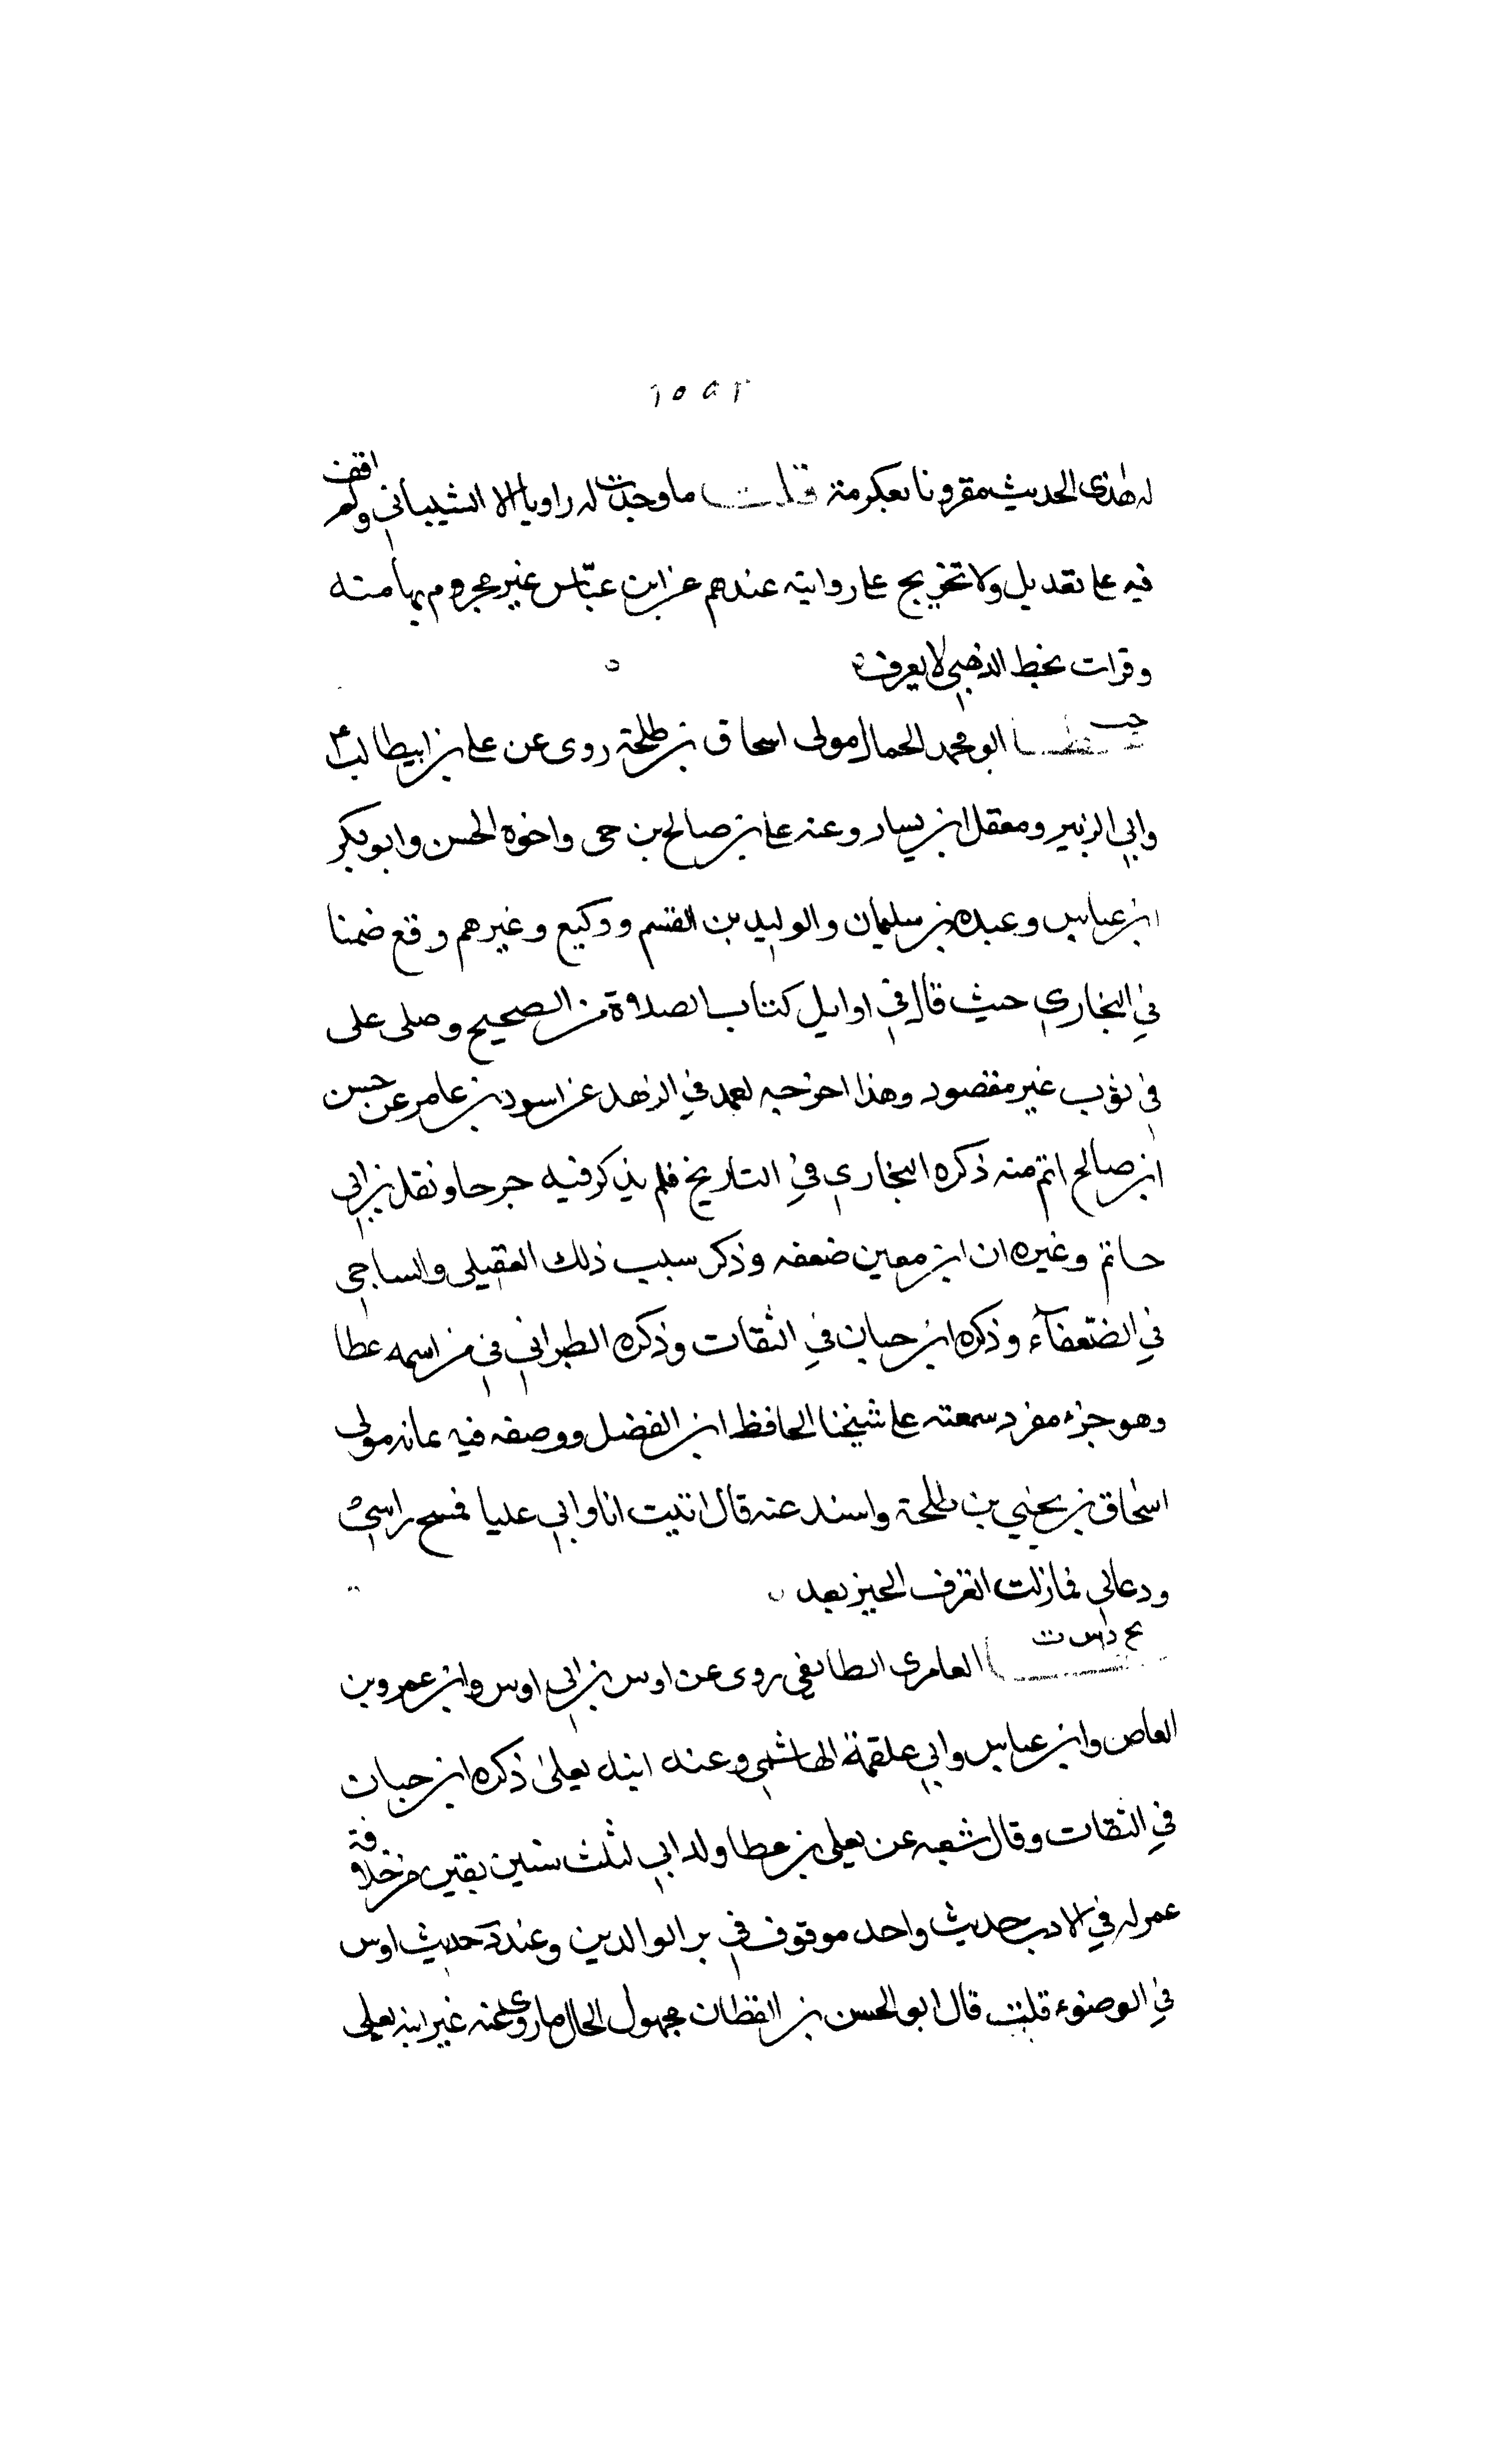 له هذي الحديث مقرونا بعكرمة قلت ما وجدت له راويا الا الشيباني ولم اقف
فيه على تعديل ولا تخريج على روايته عندهم عن ابن عباس غير مجزوم بها منه
وقرات بخط الذهبي لا يعرف
ابو محمد الحمال مولى اسحاق بن طلحة روى عن على بن ابيطالب
وابي الزبير ومعقل ابن يسار وعنه على بن صالح بن حى واخوه الحسن وابو بكر
ابن عباس وعبده بن سليمان والوليد بن القسم ووكيع وغيرهم وقع ضمنا
في البخاري حيث قال في اوايل كتاب الصلاة من الصحيح وصلى على
في ثوب غير مقصور وهذا اخرجه احمد في الزهد عن اسود بن عامر عن حسن
ابن صالح اتم منه ذكره البخاري في التاريخ فلم يذكر فيه جرحا ونقل بن ابي
حاتم وغيره ان ابن معين ضعفه وذكر سبب ذلك العقيلي والساجي
في الضعفآء وذكره ابن حبان في الثقات وذكره الطبراني في من اسمه عطا
وهو جزء مفرد سمعته على شيخنا الحافظ ابن الفضل ووصفه فيه بمانه مولى
اسحاق بن يحيي بن طلحة واسند عنه قال اتيت انا وابي عليا فمسح راسي
ودعا لي فما زلت اتعرف الخير بعد
العامري الطايفي روى عن اوس بن ابي اوس وابن عمرو بن
العاص وابن عباس وابي علقمة الهاشمي وعنه ابنه يعلى ذكره ابن حبان
في الثقات وقال شعبه عن يعلى بن عطا ولد ابي لثلث سنين بقين من خلافة
عمر له في الادب حديث واحد موقوف في بر الوالدين وعند د حديث اوس
في الوضوء قلت قال ابو الحسن بن القطان مجهول الحال ما روى عنه غير ابنه يعلى